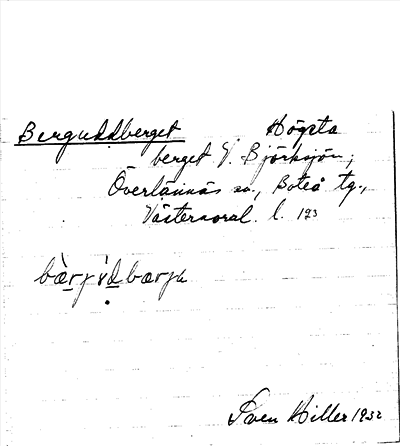 Berguddberget Högsta
berget V. Björksjön,
Överlännäs sn., Boteå tg.,
Västernorrl. l. 193
bæ̀rjʉ́dbærjə
Sven Hiller 1932